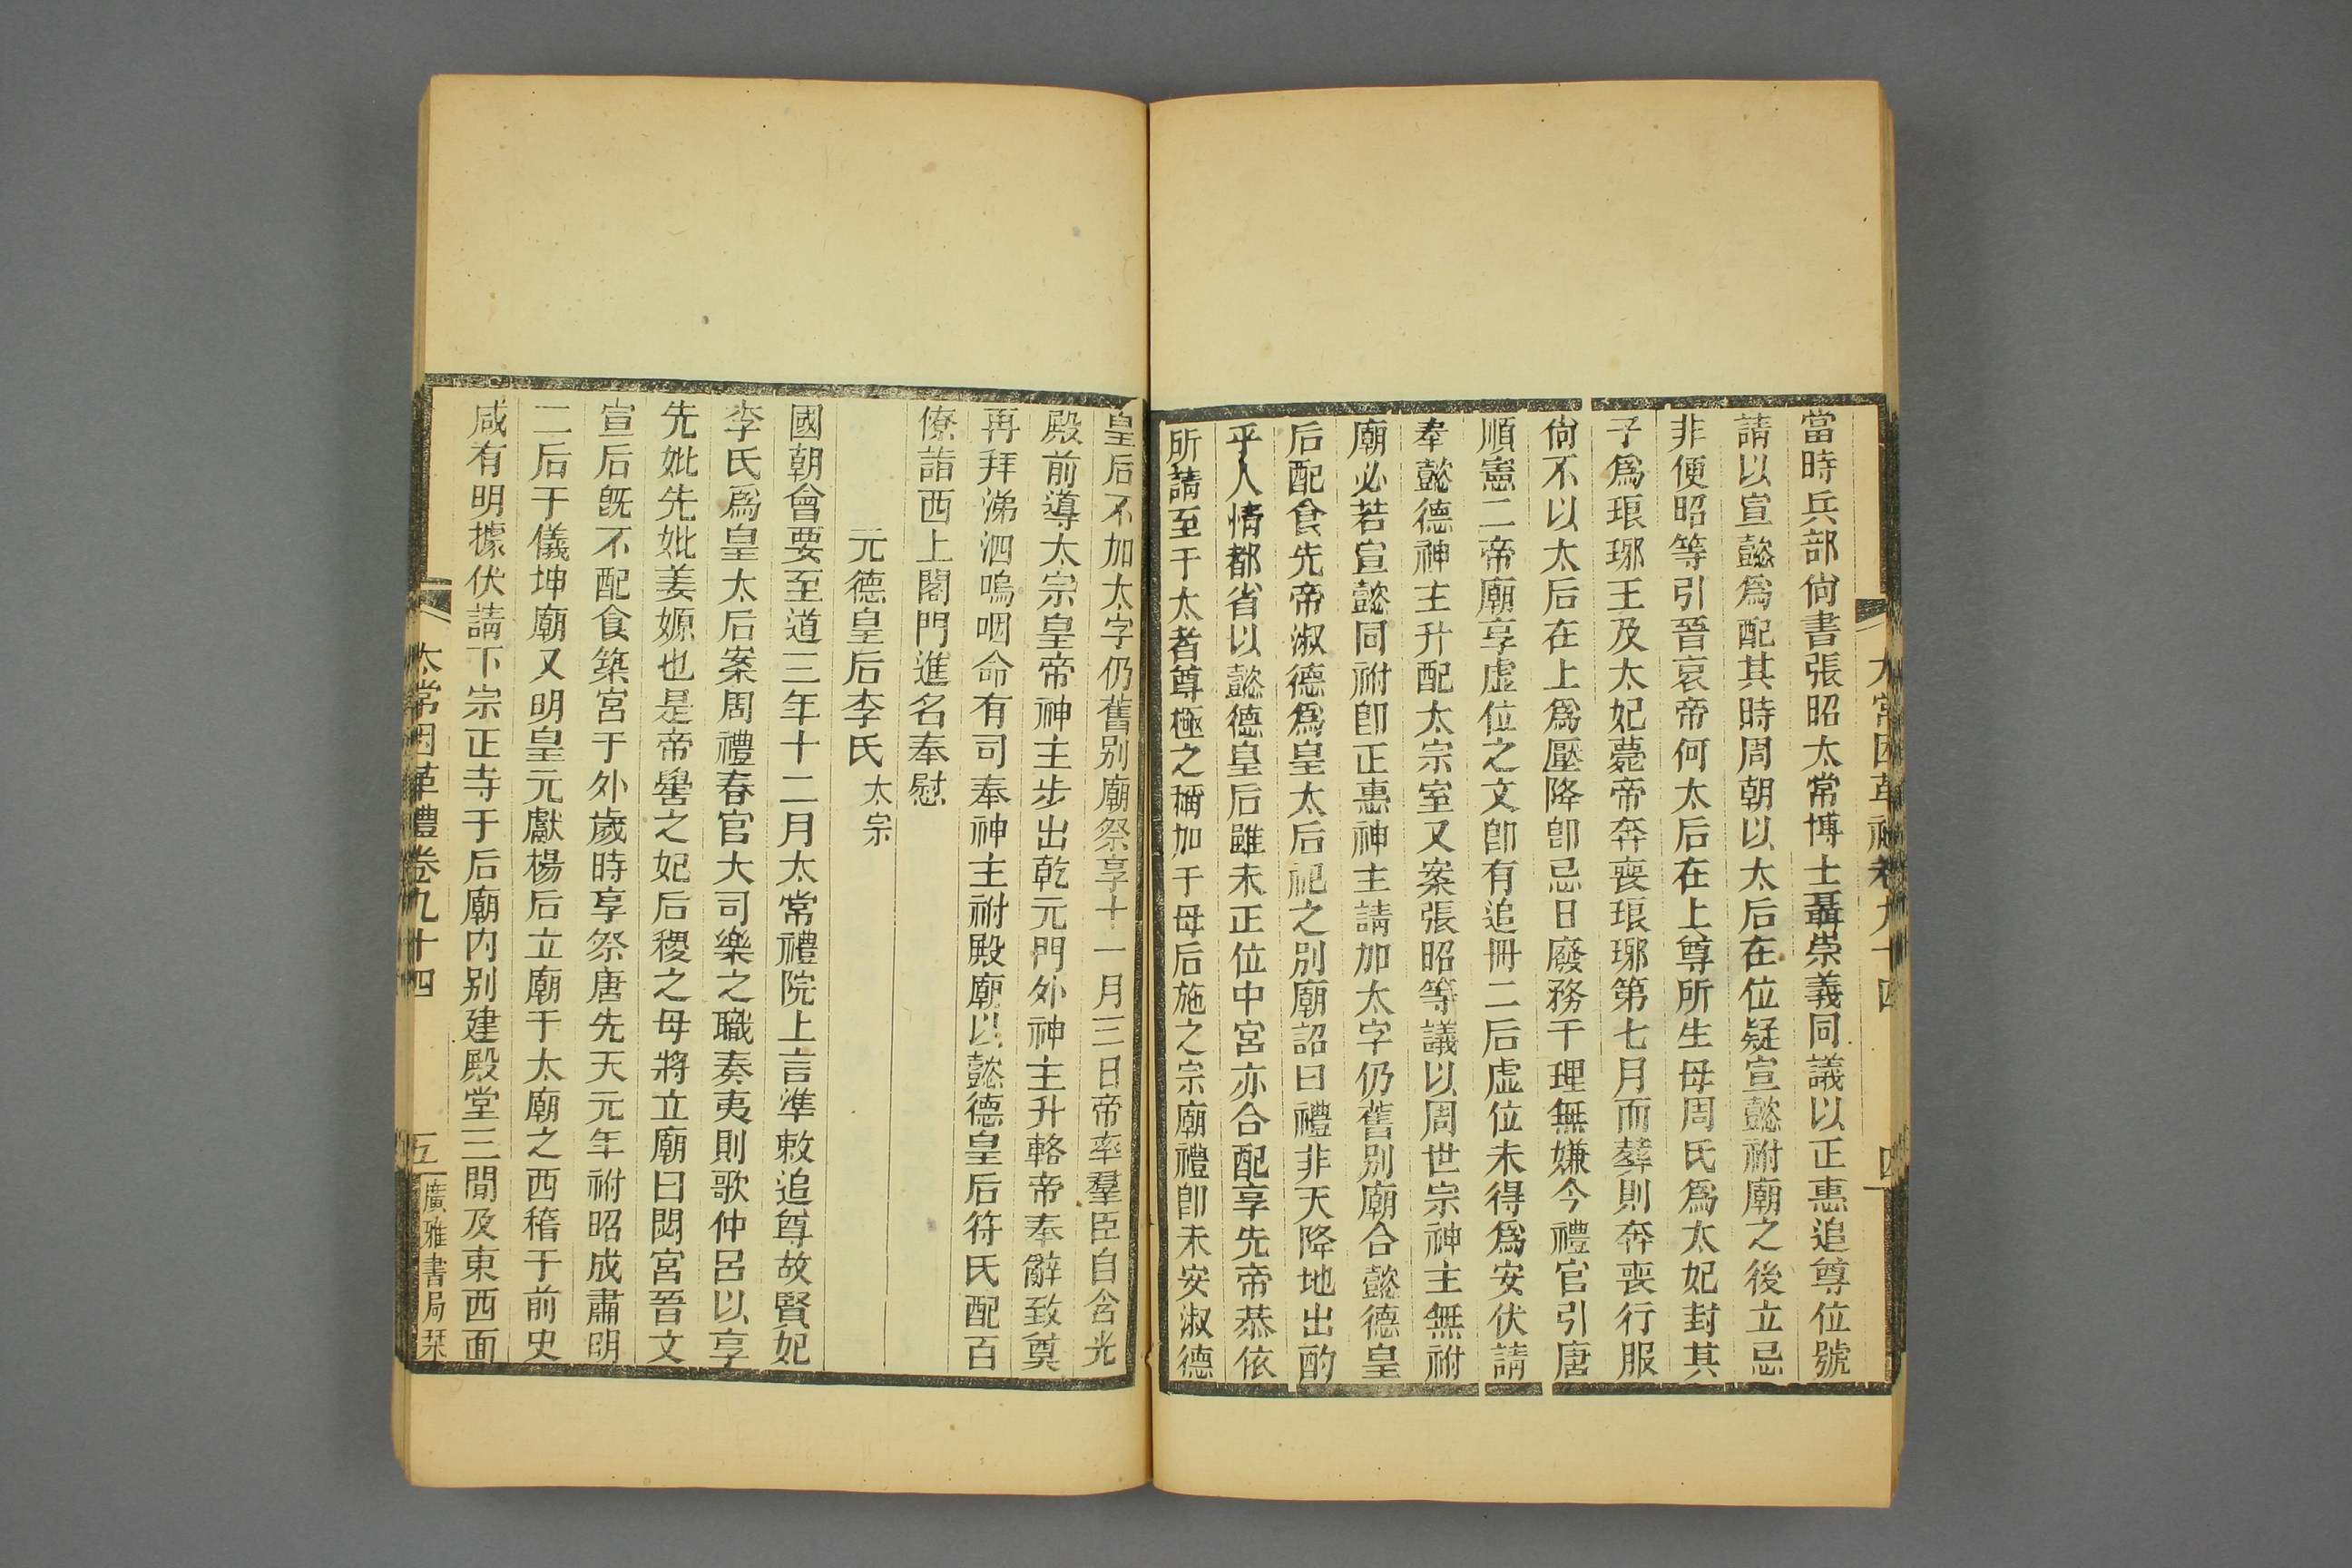 太常因革禮卷九十四
四
當時兵部尙書張昭太常博士聶崇義同議以正惠追尊位號
請以宣懿爲配其時周朝以太后在位疑宣懿祔廟之後立忌
非便昭等引晉哀帝何太后在上尊所生母周氏爲太妃封其
子爲琅琊王及太妃薨帝奔喪琅琊第七月而葬則奔喪行服
尙不以太后在上爲壓降卽忌日廢務于理無嫌今禮官引唐
順憲二帝廟享虛位之文卽有追冊二后虛位未得爲安伏請
奉懿德神主升配太宗室又案張昭等議以周世宗神主無祔
廟必若宣懿同祔卽正惠神主請加太字仍舊別廟合懿德皇
后配食先帝淑德爲皇太后祀之別廟詔曰禮非天降地出酌
乎人情都省以懿德皇后雖未正位中宮亦合配享先帝恭依
所請至于太者尊極之稱加于母后施之宗廟禮卽未安淑德
皇后不加太字仍舊別廟祭享十一月三日帝率羣臣自含光
殿前導太宗皇帝神主步出乾元門外神主升輅帝奉辭致奠
再拜涕泗嗚咽命有司奉神主祔殿廟以懿德皇后符氏配百
僚詣西上閤門進名奉慰
元德皇后李氏 太宗
國朝會要至道三年十二月太常禮院上言準敕追尊故賢妃
李氏爲皇太后案周禮春官大司樂之職奏夷則歌仲呂以享
先妣先妣姜嫄也是帝嚳之妃后稷之母將立廟曰閟宮晉文
宣后旣不配食築宮于外歲時享祭唐先天元年祔昭成肅明
二后于儀坤廟又明皇元獻楊后立廟于太廟之西稽于前史
咸有明據伏請下宗正寺于后廟內別建殿堂三閒及東西面
太常因革禮卷九十四
五
廣雅書局栞